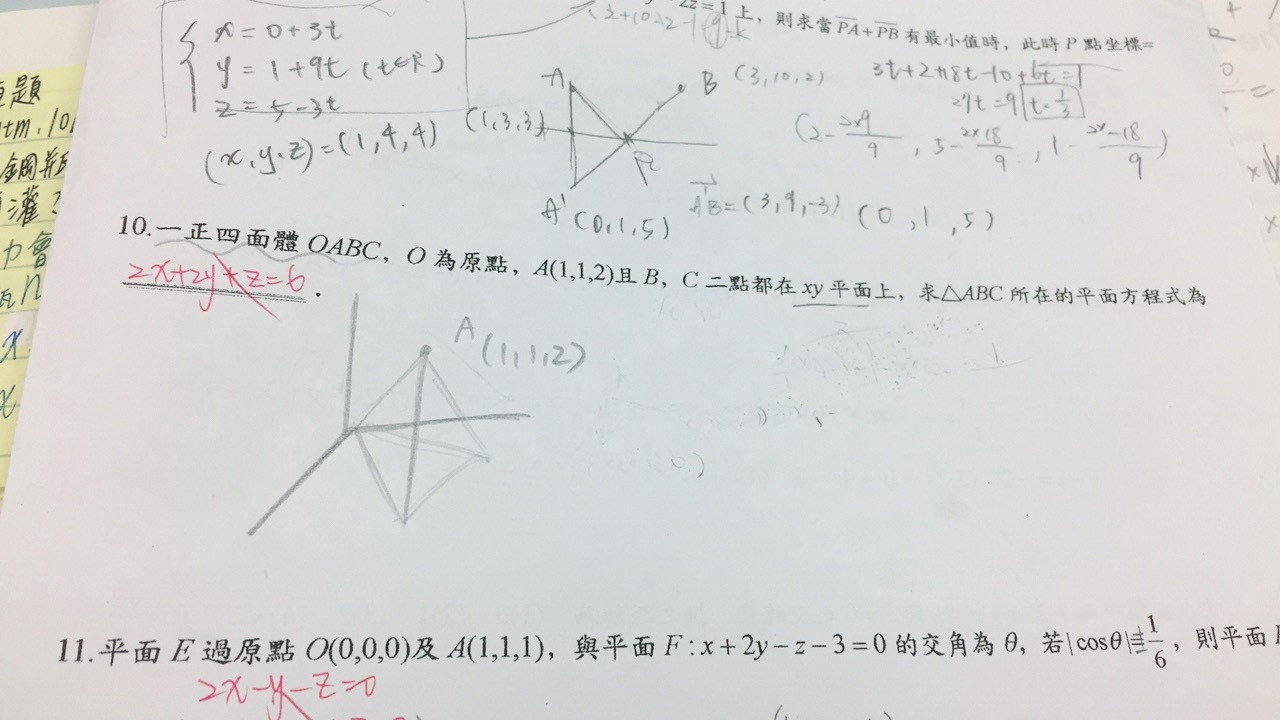 x = 0 + 3t
y = 1 + 9t (t∈R)
z = 5 - 3t
(x, y, z) = (1, 4, 4)
2z = 1 上,則求當 PA + PB 有最小值時,此時 P 點坐標=
A
B (3, 10, 2)
(1, 3, 3)
P
A' (0, 1, 5)
A'B = (3, 9, -3) (0, 1, 5)
3t + 2 + 18t - 10 + 6t = 1
27t = 9 t = 1/3
(2 - 2×9/9 , 5 - 2×18/9 , 1 - 2×-18/9)
10. 一正四面體 OABC,O 為原點,A(1,1,2)且 B,C 二點都在 xy 平面上,求△ABC 所在的平面方程式為
2x+2y+z=6 .
A (1,1,2)
11. 平面 E 過原點 O(0,0,0)及 A(1,1,1),與平面 F : x + 2y − z − 3 = 0 的交角為 θ,若 |cosθ| = 1/6 ,則平面
2x-y-z=0
題
鋼瓶
灌
力會
x